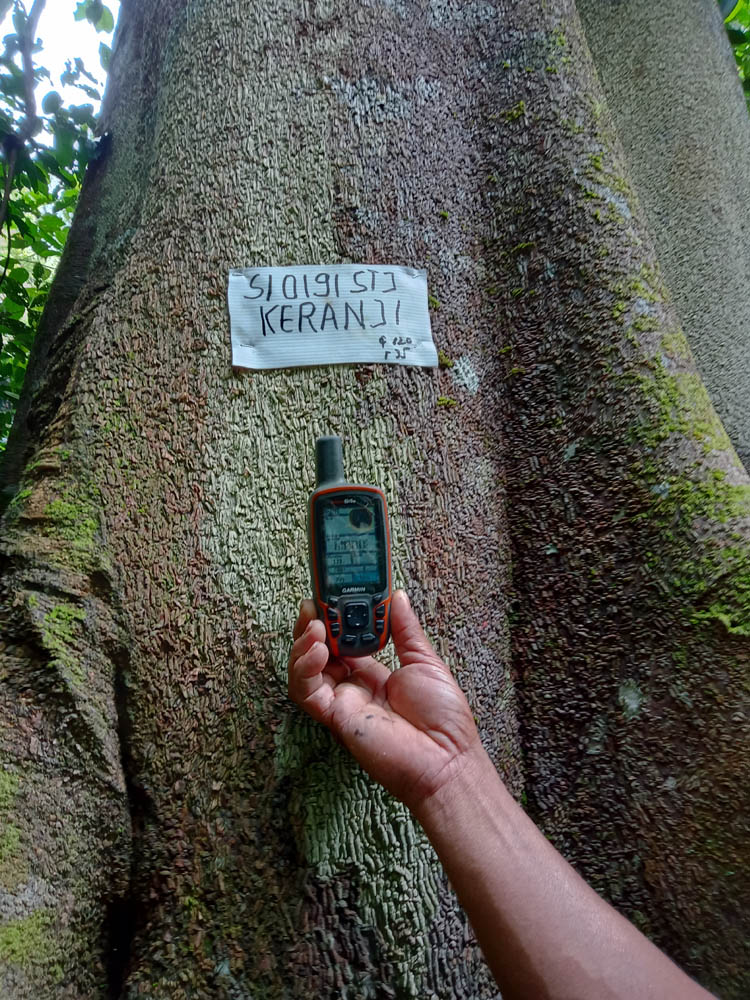 SI 0191 STJ
KERANJI
¢ 120
r 35
GARMIN